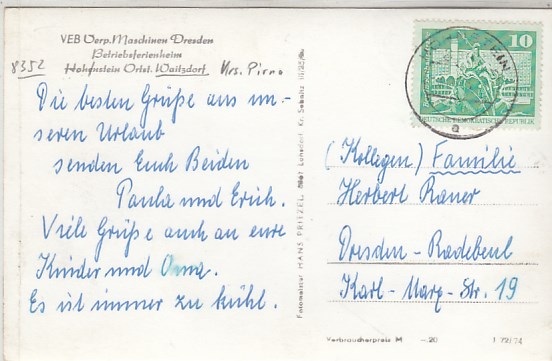 VEB Verp. Maschinen Dresden
Betriebsferienheim
Hohnstein Ortst. Waitzdorf
8352
Krs. Pirna
Die besten Grüße aus un-
seren Urlaub
senden Euch Beiden
Paula und Erich.
Viele Grüße auch an eure
Kinder und Oma.
Es ist immer zu kühl.
Fotomeister HANS PRITZEL, Lohsdorf, Kr. Sebnitz
10
DEUTSCHE DEMOKRATISCHE REPUBLIK
a
(Kollegen) Familie
Herbert Raner
Dresden-Radebeul
Karl-Marx-Str. 19
Verbraucherpreis M -.20